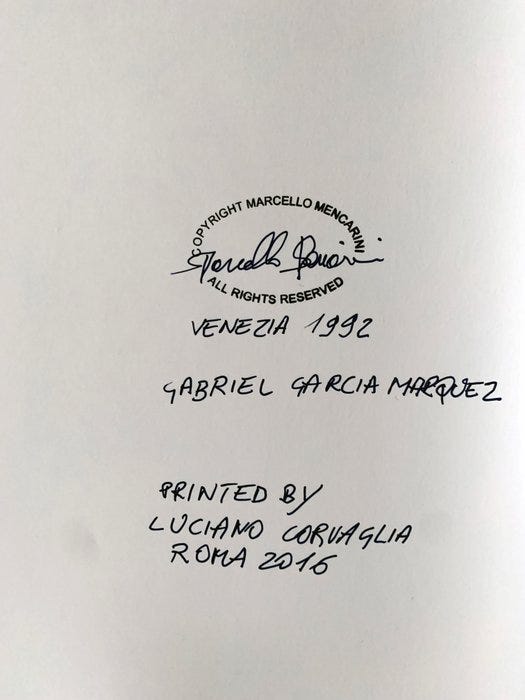 COPYRIGHT MARCELLO MENCARINI
Marcello Mencarini
ALL RIGHTS RESERVED
VENEZIA 1992
GABRIEL GARCIA MARQUEZ
PRINTED BY
LUCIANO CORVAGLIA
ROMA 2016